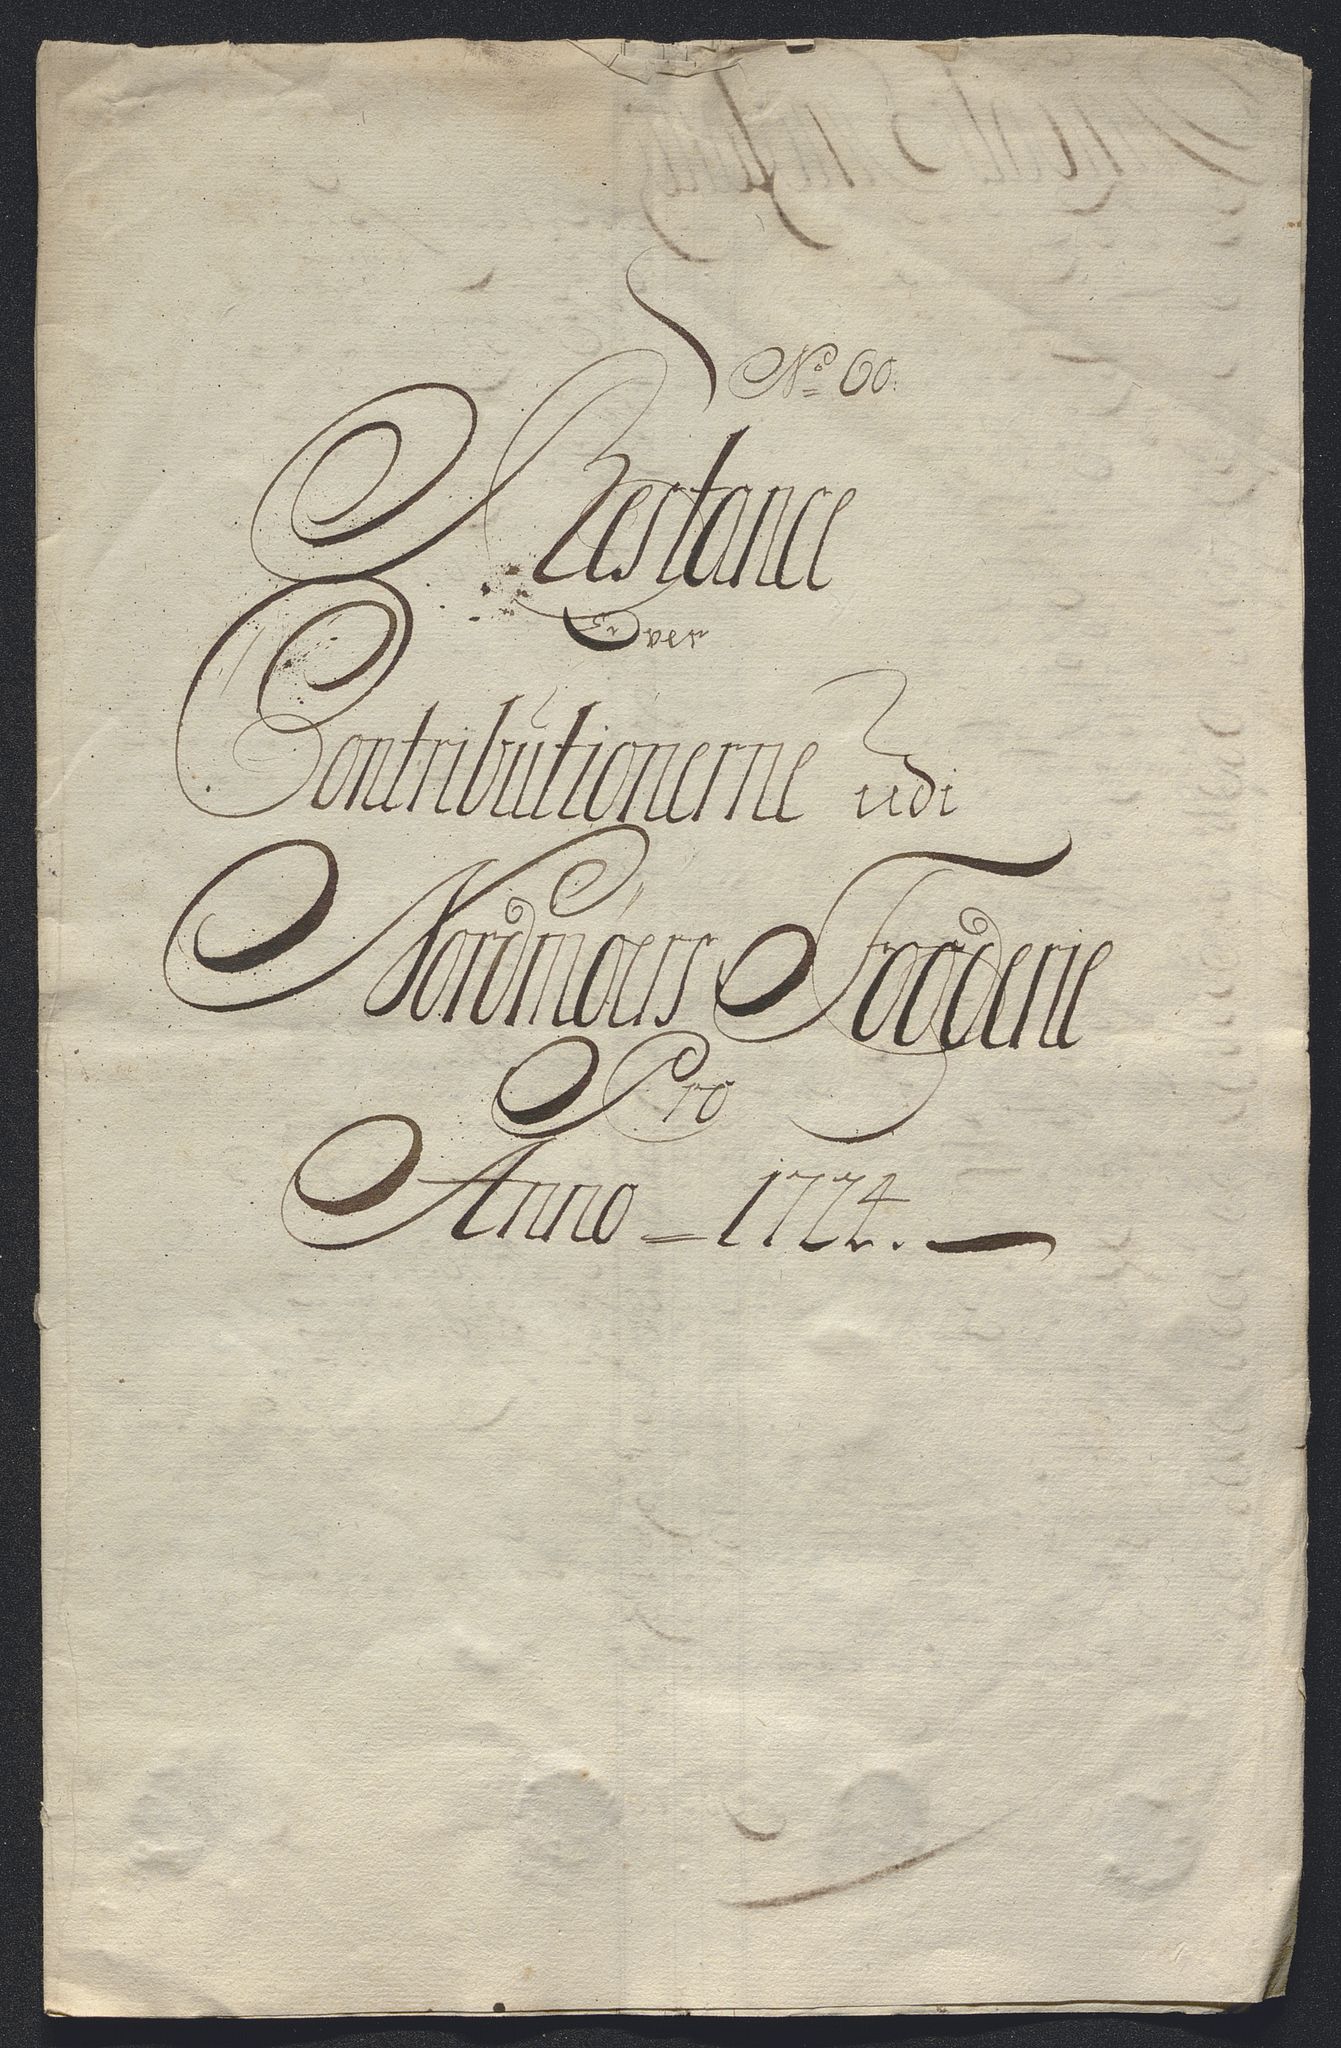 No 60.
Restance
Over
Contributionerne udi
Nordmøers Fogderie
Pro
Anno = 1724.